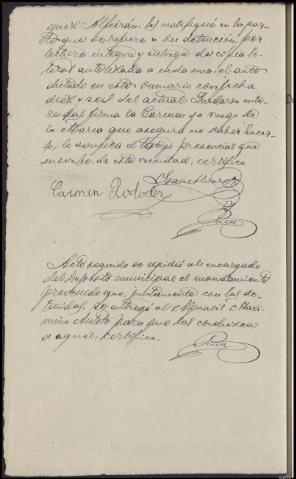 Alfeirán, les notifiqué en la par-
te que se refiere a su detención por
lectura íntegra y entrega de copia li-
teral autorizada a cada una, el auto
dictado en este sumario con fecha
diez y seis del actual. Quedaron ente-
radas, firma la Carmen y a ruego de
la que aseguró no saber hacer-
lo, lo verifica el testigo presencial que
suscribe de esta vecindad, certifico.
Carmen
Acto seguido se expidió al encargado
del Depósito municipal el mandamiento
prevenido que, juntamente con las de-
tenidas, se entregó al Alguacil
para que las conduzca
a aquel, certifico.